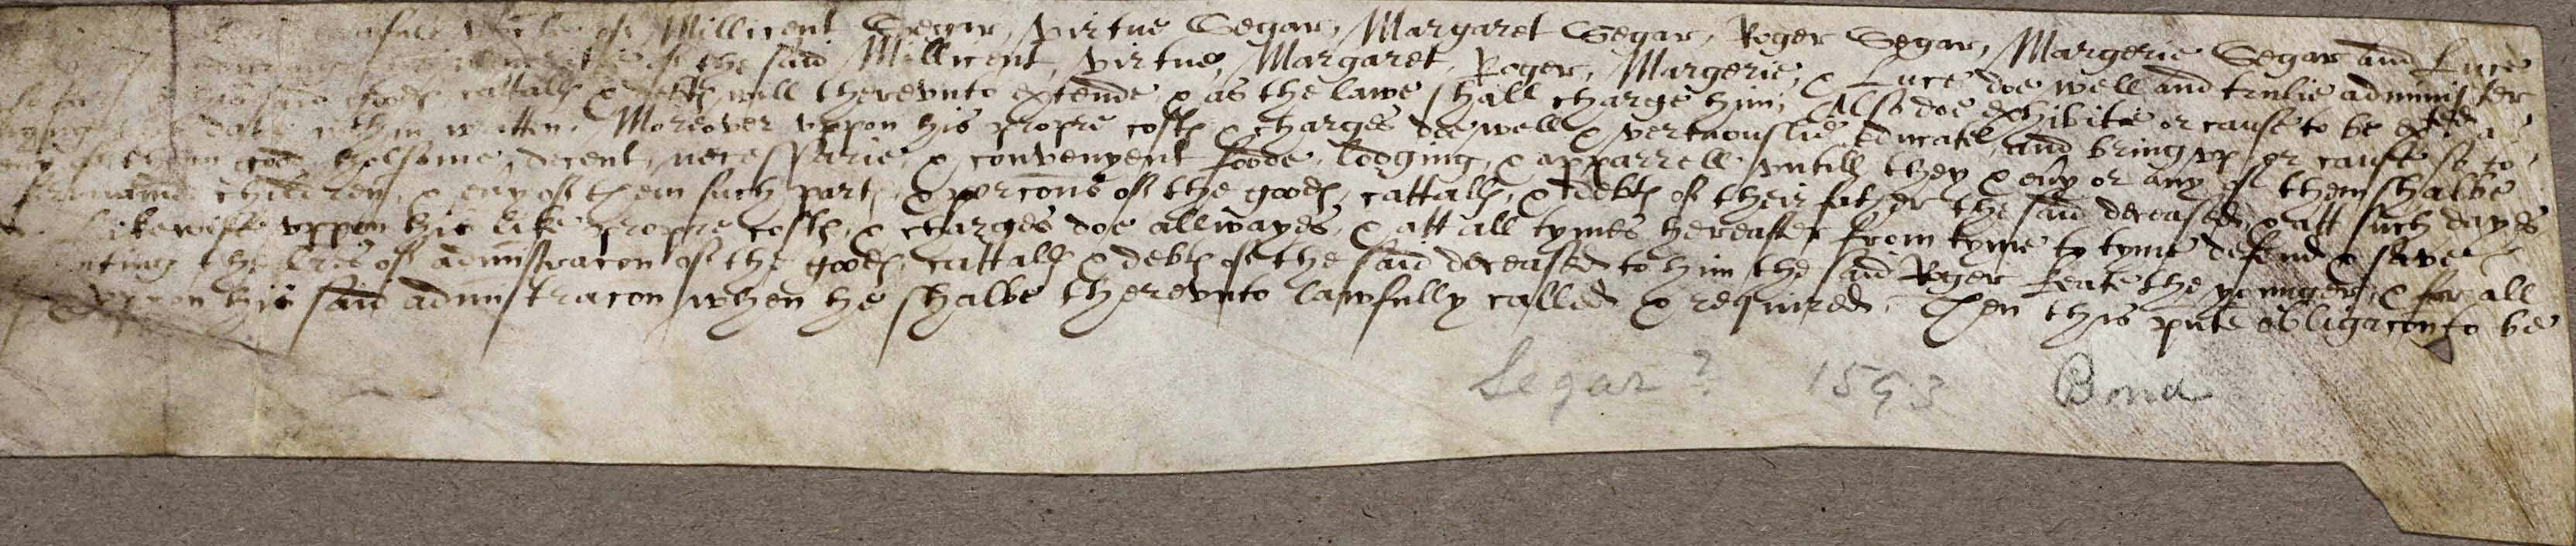 of Millicent Segar, Virtue Segar, Margaret Segar, Roger Segar, Margerie Segar and Luce
of the said Millicent, Virtue, Margaret, Roger, Margerie, & Luce doe well and trulie administer
said goodes cattalls & debts will therevnto extende & as the lawe shall charge him, Also doe exhibite or cause to be
date within written. Moreover vppon his propre costs & charges doe well & vertuouslie educate, and bring vp, or cause so to
holsome, decent, necessarie, & convenyent foode, lodging, & apparrell vntill they & eny or any of them shalbe
children, & eny of them such parts & porcons of the goodes, cattalls, & debts of their father the said deceased, & att such dayes
likewise vppon his like propre costs, & charges doe allwayes, & att all tymes hereafter from tyme to tyme defend & save
the lres of administracon of the goodes, cattalls & debts of the said deceased to him the said Roger the younger, & for all
vppon his said administracon when he shalbe therevnto lawfully called & required. Then this pnte obligacon to be
Segar? 1593 Bond